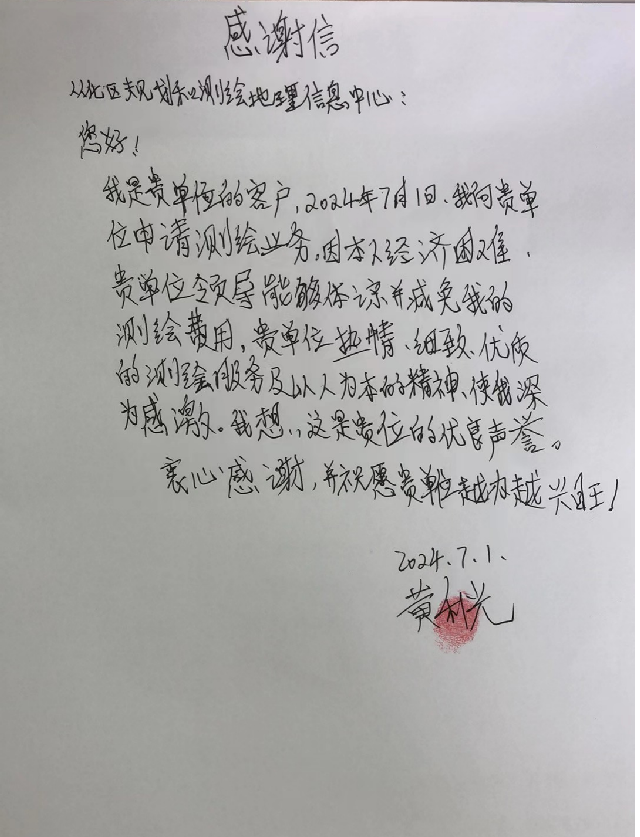 感谢信
从化区规划和测绘地理信息中心：
您好！
我是贵单位的客户，2024年7月1日、我向贵单
位申请测绘业务，因本人经济困难、
贵单位领导能够体谅并减免我的
测绘费用，贵单位热情、细致、优质
的测绘服务及以人为本的精神、使我深
为感激。我想，这是贵位的优良声誉。
衷心感谢，并祝愿贵单位越办越兴旺！
2024.7.1.
黄利光